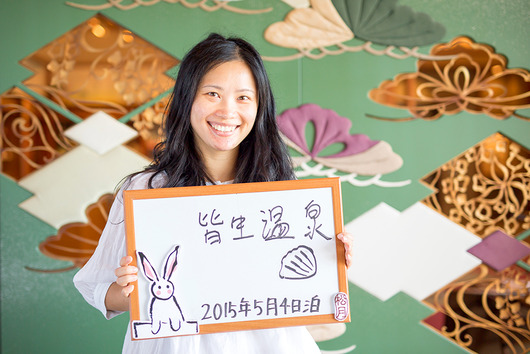 皆生温泉
2015年5月4日泊
松月